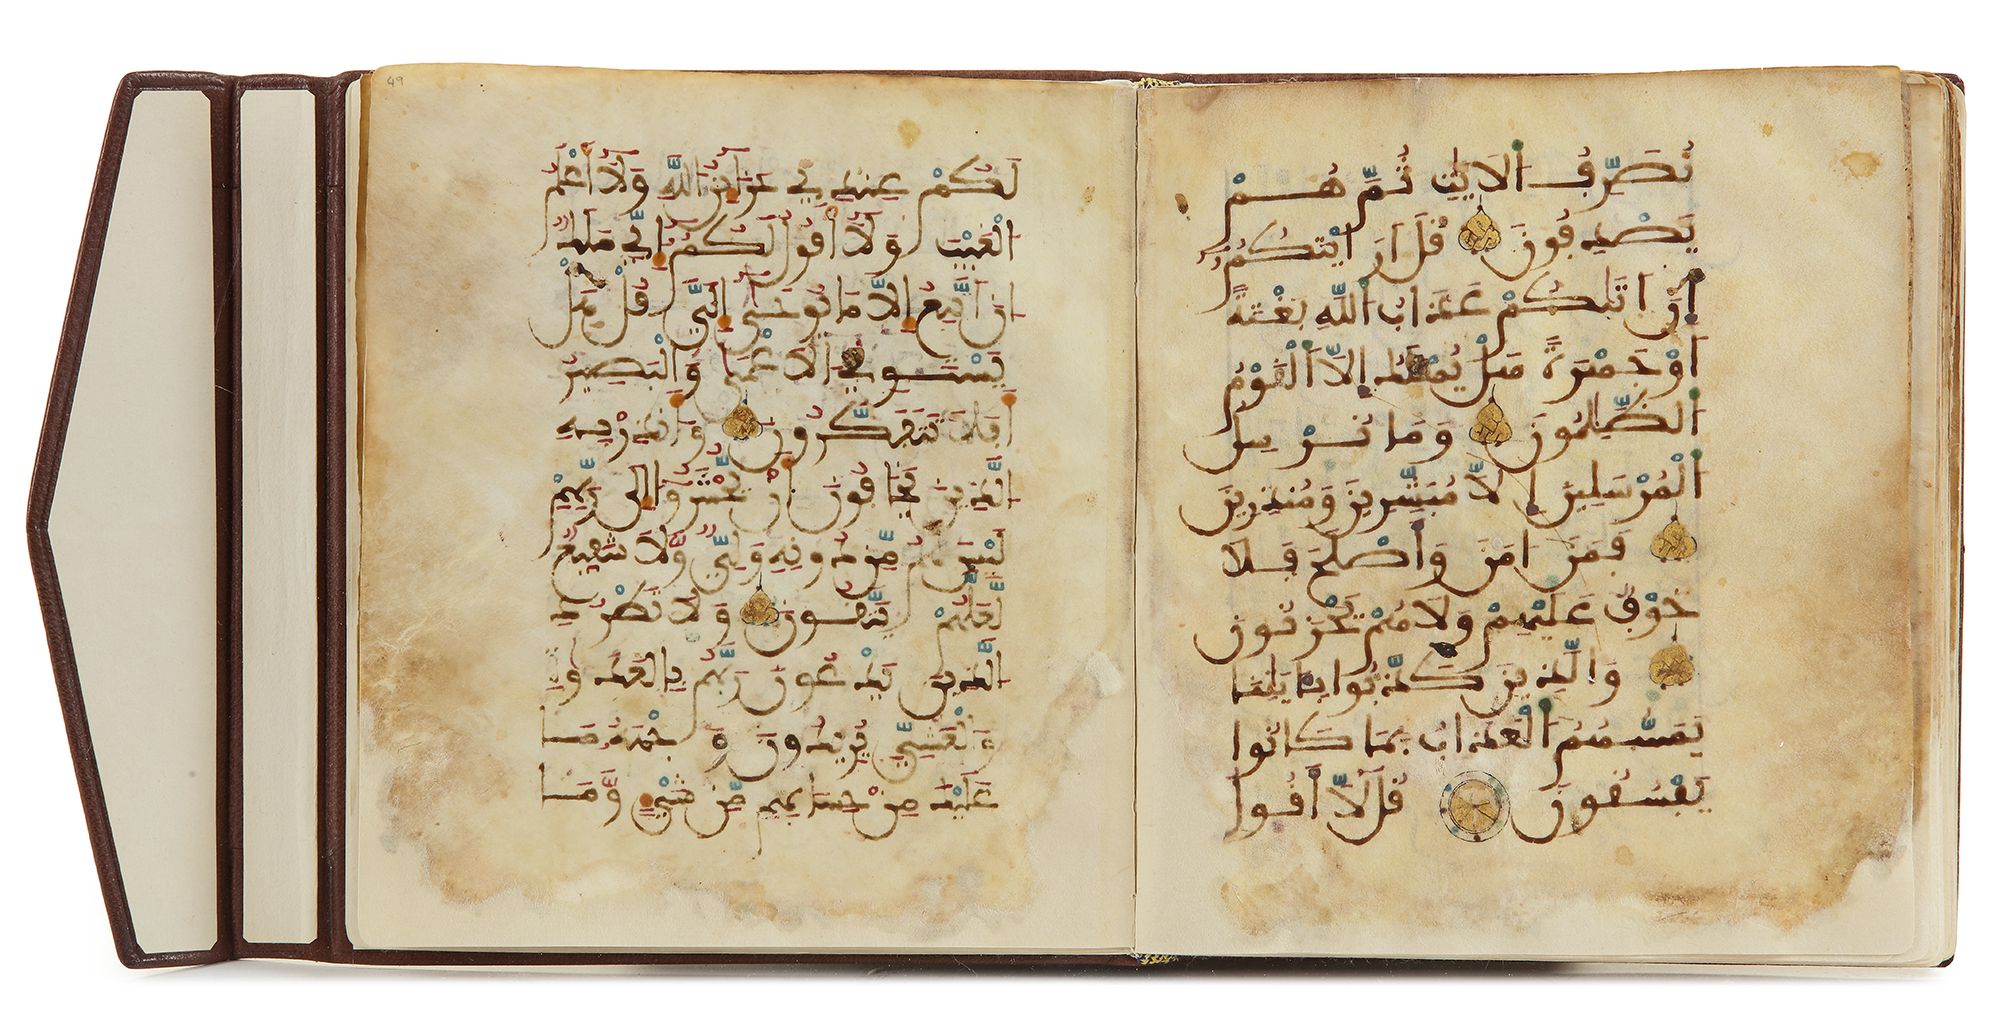 نُصَرِّفُ الَايَٰتِ ثُمَّ هُمْ
يَصْدِفُونَ قُلَ اَرَٰيْتَكُمُ
إِنَ اَتَىٰكُمْ عَذَابُ اللَّهِ بَغْتَةً
اَوْ جَهْرَةً هَلْ يُهْلَكُ إِلَّا الْقَوْمُ
الظَّٰلِمُونَ وَمَا نُرْسِلُ
الْمُرْسَلِينَ إِلَّا مُبَشِّرِينَ وَمُنذِرِينَ
فَمَنَ اٰمَنَ وَأَصْلَحَ فَلَا
خَوْفٌ عَلَيْهِمْ وَلَا هُمْ يَحْزَنُونَ
وَالَّذِينَ كَذَّبُوا بِـَٔايَٰتِنَا
يَمَسُّهُمُ الْعَذَابُ بِمَا كَانُوا
يَفْسُقُونَ قُل لَّا أَقُولُ
49
لَكُمْ عِندِي خَزَآئِنُ اللَّهِ وَلَآ أَعْلَمُ
الْغَيْبَ وَلَآ أَقُولُ لَكُمُ إِنِّي مَلَكٌ
اِنَ اَتَّبِعُ إِلَّا مَا يُوحَىٰٓ إِلَيَّ قُلْ هَلْ
يَسْتَوِي الَاعْمَىٰ وَالْبَصِيرُ
أَفَلَا تَتَفَكَّرُونَ وَأَنذِرْ بِهِ
الَّذِينَ يَخَافُونَ أَنْ يُّحْشَرُوٓا إِلَىٰ رَبِّهِمْ
لَيْسَ لَهُم مِّن دُونِهِ وَلِيٌّ وَّلَا شَفِيعٌ
لَّعَلَّهُمْ يَتَّقُونَ وَلَا تَطْرُدِ
الَّذِينَ يَدْعُونَ رَبَّهُم بِالْغَدَوٰةِ
وَالْعَشِيِّ يُرِيدُونَ وَجْهَهُ مَا
عَلَيْكَ مِنْ حِسَابِهِم مِّن شَيْءٍ وَّمَا